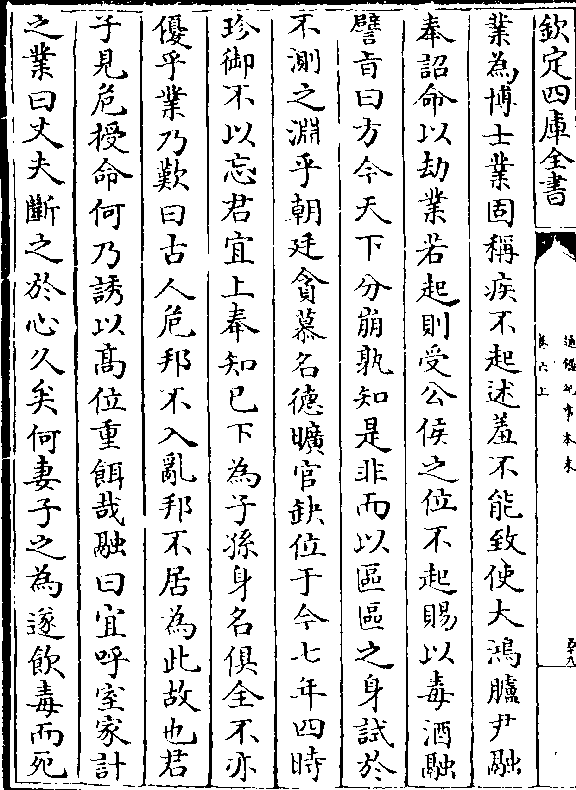 欽定四庫全書
通鑑紀事本末
卷六上
業為博士業固稱疾不起述羞不能致使大鴻臚尹融
奉詔命以劫業若起則受公侯之位不起賜以毒酒融
譬旨曰方今天下分崩孰知是非而以區區之身試於
不測之淵乎朝廷貪慕名德曠官缺位于今七年四時
珍御不以忘君宜上奉知已下為子孫身名俱全不亦
優乎業乃歎曰古人危邦不入亂邦不居為此故也君
子見危授命何乃誘以高位重餌哉融曰宜呼室家計
之業曰丈夫斷之於心久矣何妻子之為遂飲毒而死